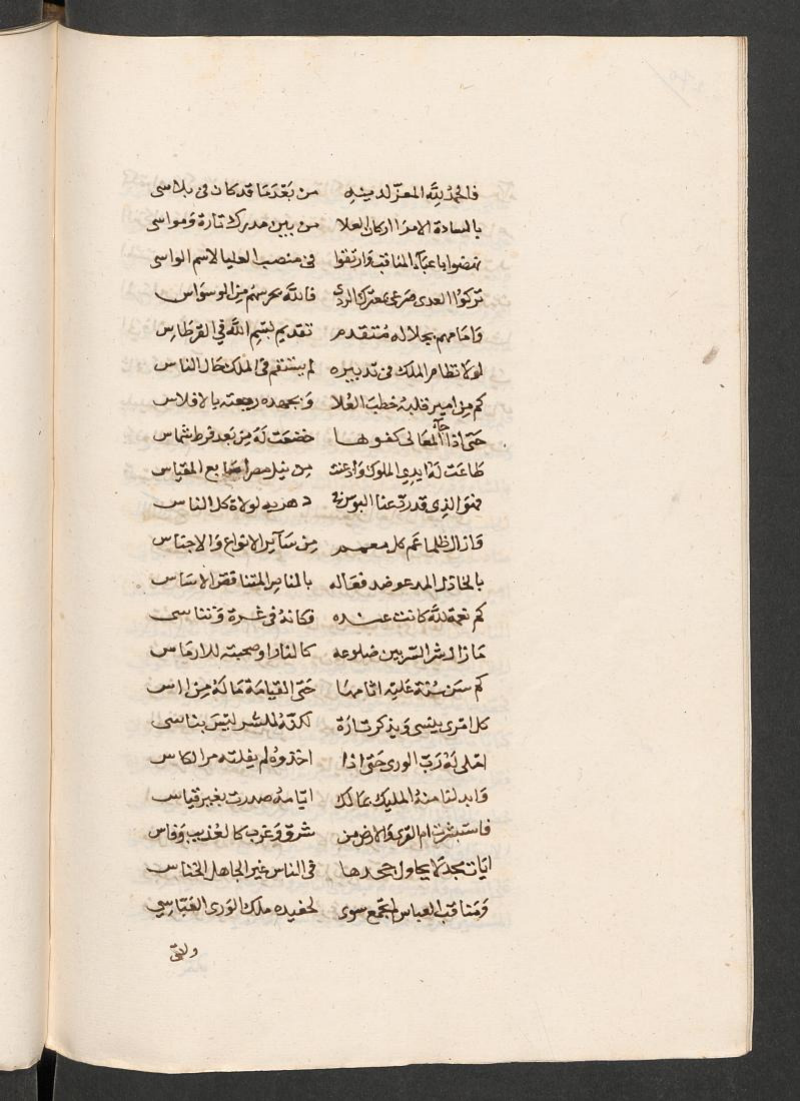 فالحمدُ لِلّه المعزّ لدينِه من بَعْدمَا قد كان فى بلاسى
بالسادة الامرا اركان العلا من بين مدرك تارة وَمواسى
نهضوا باعبآء المناقب وَارتقوا فى منصب العليا لاسم الراسى
تركوُا العدى صَرعى بمعترك الردى فاللّه يحرسهم مِن الوسوَاس
وَامَامهم بجلاله مُتقدم تقديم لبسم اللّه في القرطَاسِ
لولا نظام الملك فى تدبيره لم يستقم فى الملك حَال الناس
كم مِن امير قبله خطب العُلا وَبجهده رجعته بالافلاس
حَتى اذا جآء المعَالى كفوها خضعَت لَهُ مِن بَعد فرط شماس
طَاعَت لهُ ايدى الملوك وَاذعنت مِن نيل مصر اصَابع المقيَاس
فهوَ الذِى قد ردّ عنا البوس فى دهر به لولاهُ كل الناس
وَازال ظلما عَم كل معمم مِن سَآير الانواع وَالاجناس
بالخاذل المدعو ضد فعَاله بالناصر المتناقض الاسَاس
كم نعمة للّه كانت عنده فكانهُ فى غُربة وَتناسى
مَا زال شر الشر بين ضلوعه كالنار او صحبته للارمَاس
كم سَن سُنّة عَليه اثامهَا حَتى القيَامَة مَا لهُ مِن اس
كل امرى ينسى وَيذكر تارَة لكنّهُ للشر ليسَ بناسى
املى لهُ رَبّ الورى حَتى اذا اخذوهُ لم يفلته مر الكاس
وَابدلنا منهُ المليك بمَالك ايّامهُ صدرت بغير قياس
فاستبشرت ام القرى وَالارض مِن شرق وَغرب كالعُذيب وَفاس
ايَات مجد لا يحاول جحدها فى الناس غير الجاهل الخناس
وَمَناقب العباس لم تجمع سوى لحفيده ملك الوَرى العَبّاسِي